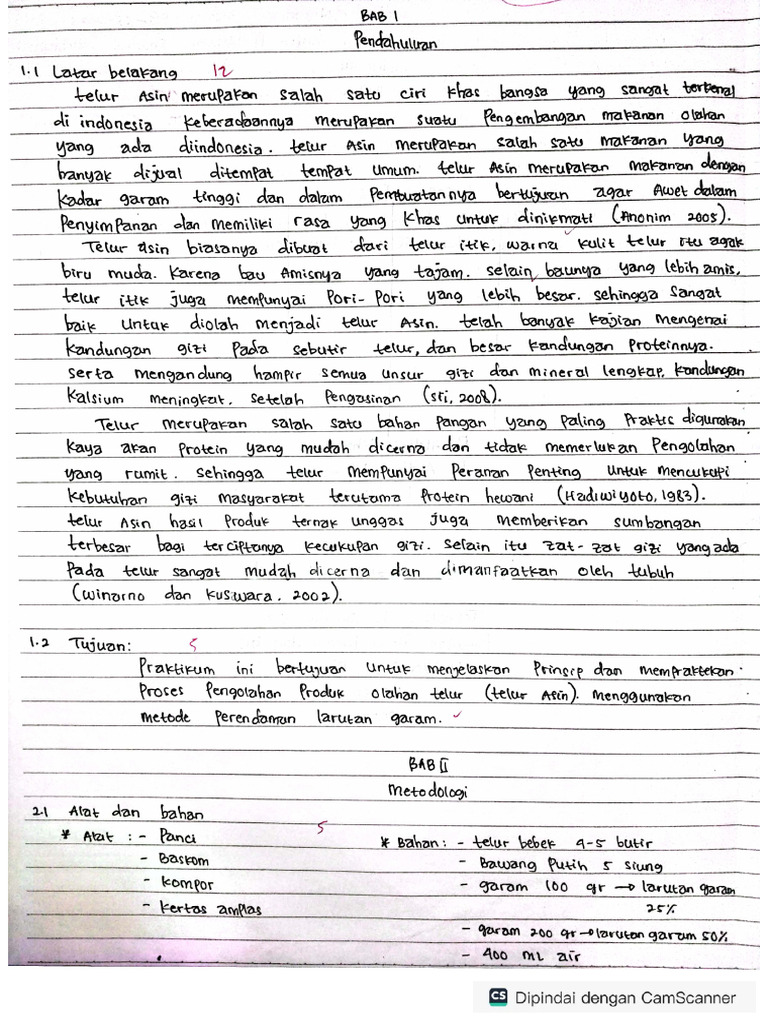 BAB I
Pendahuluan
1.1 Latar belakang 12
telur Asin merupakan salah satu ciri khas bangsa yang sangat terkenal
di indonesia keberadaannya merupakan suatu Pengembangan makanan olahan
yang ada diindonesia. telur Asin merupakan salah satu makanan yang
banyak dijual ditempat tempat umum. telur Asin merupakan makanan dengan
kadar garam tinggi dan dalam Pembuatannya bertujuan agar Awet dalam
Penyimpanan dan memiliki rasa yang khas untuk dinikmati (Anonim 2005).
Telur asin biasanya dibuat dari telur itik, warna kulit telur itu agak
biru muda. karena bau Amisnya yang tajam. selain baunya yang lebih amis,
telur itik juga mempunyai Pori-Pori yang lebih besar. sehingga sangat
baik untuk diolah menjadi telur Asin. telah banyak kajian mengenai
kandungan gizi Pada sebutir telur, dan besar kandungan Proteinnya.
serta mengandung hampir semua unsur gizi dan mineral lengkap, kandungan
kalsium meningkat, setelah Pengasinan (sri, 2008).
Telur merupakan salah satu bahan pangan yang paling Praktis digunakan
kaya akan Protein yang mudah dicerna dan tidak memerlukan Pengolahan
yang rumit. sehingga telur mempunyai Peranan Penting untuk mencukupi
kebutuhan gizi masyarakat terutama Protein hewani (Hadiwiyoto, 1983).
telur Asin hasil Produk ternak unggas juga memberikan sumbangan
terbesar bagi terciptanya kecukupan gizi. selain itu zat-zat gizi yang ada
Pada telur sangat mudah dicerna dan dimanfaatkan oleh tubuh
(winarno dan kuswara. 2002).
1.2 Tujuan: 5
Praktikum ini bertujuan untuk menjelaskan Prinsip dan mempraktekan
Proses Pengolahan Produk olahan telur (telur Asin). menggunakan
metode perendaman larutan garam.
BAB II
metodologi
2.1 Alat dan bahan 5
* Alat : - Panci
- Baskom
- kompor
- kertas amplas
* Bahan : - telur bebek 4-5 butir
- Bawang Putih 5 siung
- garam 100 gr → larutan garam
25%
- garam 200 gr → larutan garam 50%
- 400 ML air
CS Dipindai dengan CamScanner